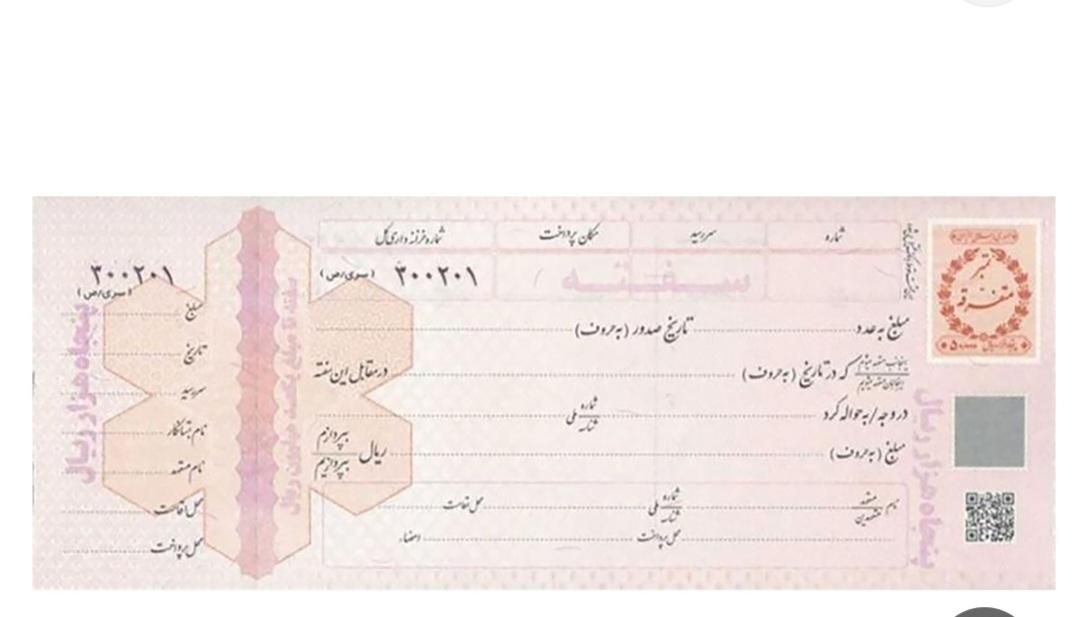 شماره
سررسید
مکان پرداخت
شماره خزانه داری کل
سفته
۳۰۰۲۰۱
(سری/ص)
۳۰۰۲۰۱
(سری/ص)
تمبر
متفرقه
مبلغ به عدد تاریخ صدور (به حروف)
اینجانب متعهد میشوم
اینجانبان متعهد میشویم
که در تاریخ (به حروف) در مقابل این سفته
در وجه/به حواله کرد شماره شناسه ملی
مبلغ (به حروف) ریال
بپردازم
بپردازیم
نام متعهد متعهدین شماره شناسه ملی محل اقامت
محل پرداخت امضاء
مبلغ
تاریخ
سررسید
نام بستانکار
نام متعهد
محل اقامت
محل پرداخت
سفته تا مبلغ یکصد میلیون ریال
پنجاه هزار ریال
پنجاه هزار ریال